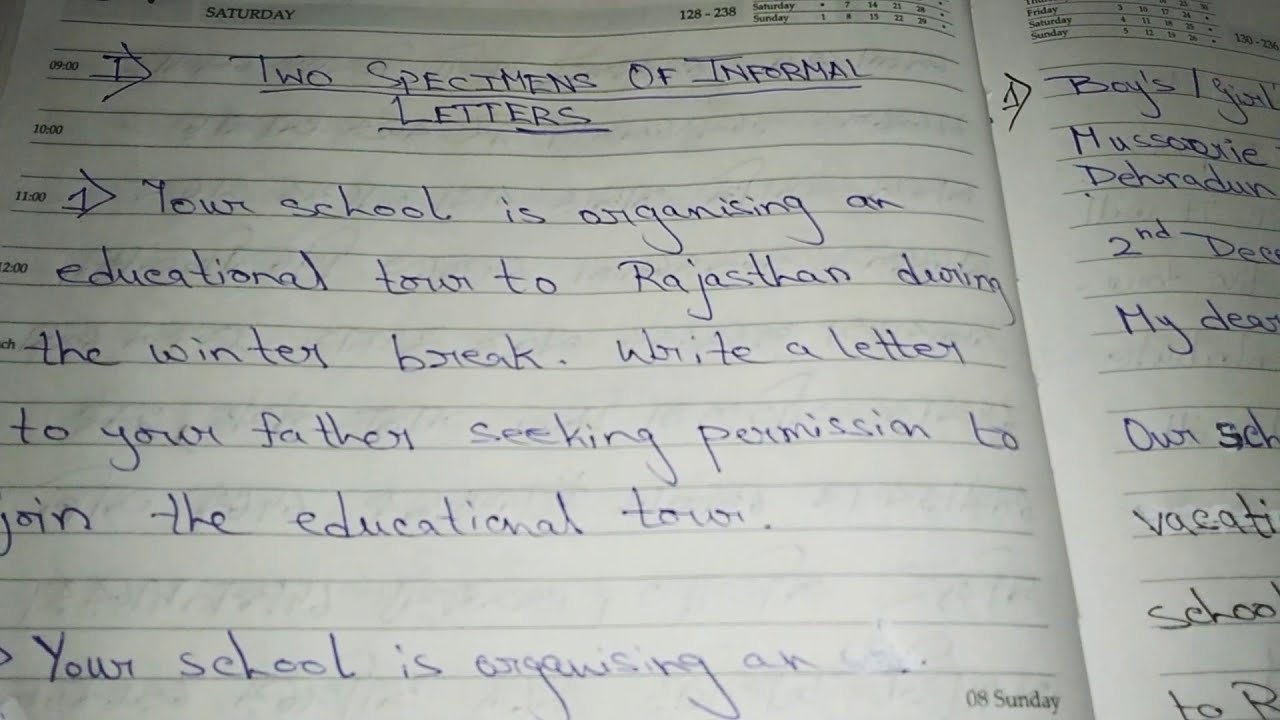 SATURDAY 128 - 238
Saturday • 7 14 21 28 •
Sunday 1 8 15 22 29 •
09:00 I) TWO SPECIMENS OF INFORMAL
LETTERS
10:00
11:00 1) Your school is organising an
12:00 educational tour to Rajasthan during
the winter break. Write a letter
to your father seeking permission to
join the educational tour.
Your school is organising an
08 Sunday
Friday 3 10 17 24 •
Saturday 4 11 18 25 •
Sunday 5 12 19 26 •
130 - 236
1) Boy's / Girl'
Mussoorie
Dehradun
2nd Dece
My dear
Our sch
vacati
school
to R